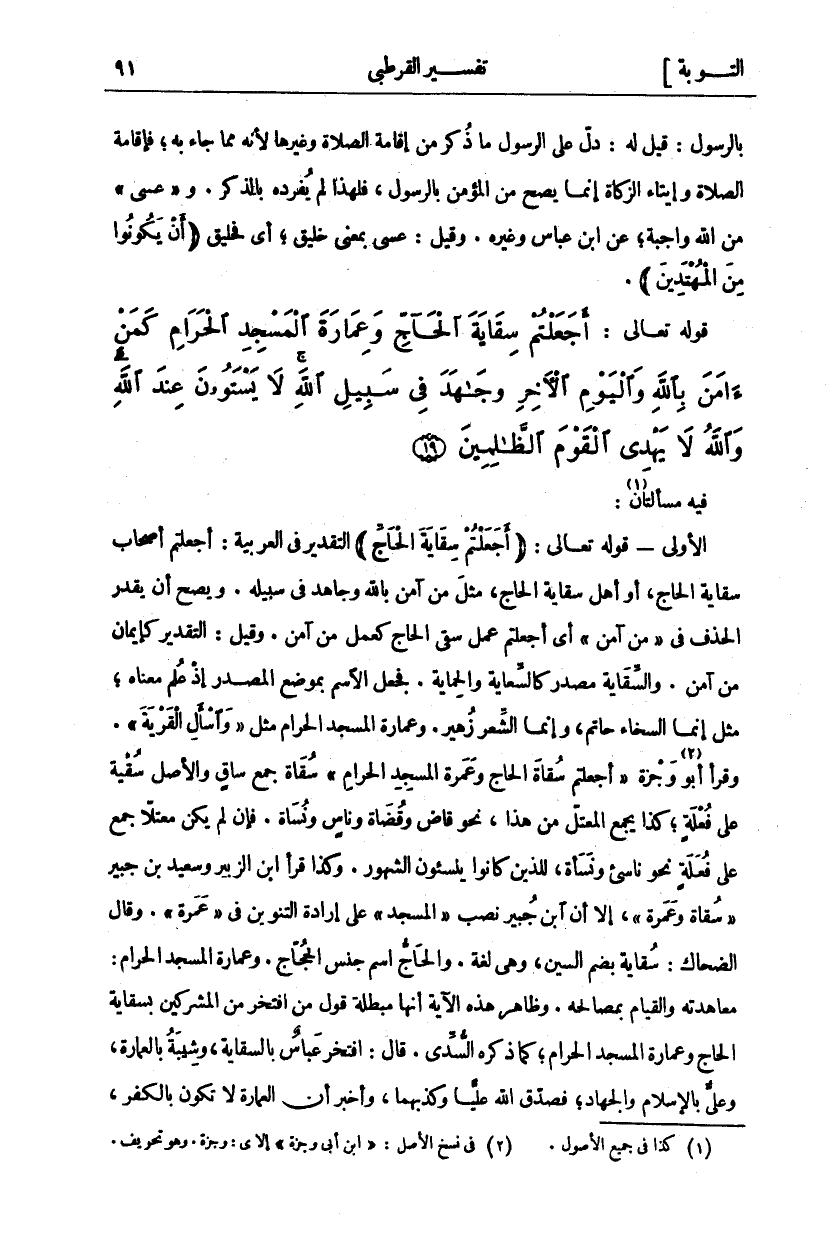 التــوبة ]
تفســير القرطبي
٩١
بالرسول : قيل له : دلّ على الرسول ما ذُكر من إقامة الصلاة وغيرها لأنه مما جاء به ؛ فإقامة
الصلاة و إيتاء الزكاة إنمـا يصح من المؤمن بالرسول ، فلهذا لم يُفرده بالذكر . و « عسى »
من الله واجبة؛ عن ابن عباس وغيره . وقيل : عسى بمعنى خليق ؛ أى فخليق ﴿ أَنْ يَكُونُوا
مِنَ الْمُهْتَدِينَ ﴾ .
قوله تعـالى : أَجَعَلْتُمْ سِقَايَةَ ٱلْحَـآجِّ وَعِمَارَةَ ٱلْمَسْجِدِ ٱلْحَرَامِ كَمَنْ
ءَامَنَ بِٱللَّهِ وَٱلْيَوْمِ ٱلْأَخِرِ وَجَـٰهَدَ فِى سَبِيلِ ٱللَّهِ ۚ لَا يَسْتَوُۥنَ عِندَ ٱللَّهِ ۗ
وَٱللَّهُ لَا يَهْدِى ٱلْقَوْمَ ٱلظَّـٰلِمِينَ ﴿١٩﴾
فيه مسألتان (١) :
الأولى — قوله تعـالى : ﴿ أَجَعَلْتُمْ سِقَايَةَ الْحَاجِّ ﴾ التقدير فى العربية : أجعلتم أصحاب
سقاية الحاج، أو أهل سقاية الحاج، مثلَ من آمن بالله وجاهد فى سبيله . و يصح أن يقدر
الحذف فى « من آمن » أى أجعلتم عمل سقى الحاج كعمل من آمن . وقيل : التقدير كإيمان
من آمن . والسِّقاية مصدر كالسِّعاية والحِماية . فجعل الآسم بموضع المصـدر إذْ عُلم معناه ؛
مثل إنمـا السخاء حاتم، و إنمـا الشِّعر زُهير. وعمارة المسجد الحرام مثل « وَٱسْأَلِ الْقَرْيَةَ » .
وقرأ أبو وَجْزة (٢) « أجعلتم سُقاةَ الحاج وعَمَرة المسجِدِ الحرامِ » سُقَاة جمع ساقٍ والأصل سُقْية
على فُعْلَةٍ ؛ كذا يجمع المعتلّ من هذا ، نحو قاض وقُضَاة وناسٍ ونُسَاة . فإن لم يكن معتلّا جمع
على فَعَلَةٍ نحو ناسئ ونَسَأة، للذين كانوا ينسئون الشهور . وكذا قرأ ابن الزبير وسعيد بن جبير
« سُقاة وعَمَرة »، إلا أن ٱبن جُبير نصب « المسجد » على إرادة التنوين فى « عَمَرة » . وقال
الضحاك : سُقاية بضم السين، وهى لغة . والحَاجُّ اسم جنس الحُجّاج . وعمارة المسجد الحرام :
معاهدته والقيام بمصالحه . وظاهر هذه الآية أنها مبطلة قول من افتخر من المشركين بسقاية
الحاج وعمارة المسجد الحرام؛ كما ذكره السُّدِّى . قال : افتخر عَباسٌ بالسقاية، وشيبَةُ بالعمارة،
وعلىٌّ بالإسلام والجهاد؛ فصدّق الله عليًّا وكذبهما ، وأخبر أن العمارة لا تكون بالكفر ،
(١) كذا فى جميع الأصول .    (٢) فى نسخ الأصل : « ابن أبى وجزة » إلا ى : وجزة . وهو تحريف .